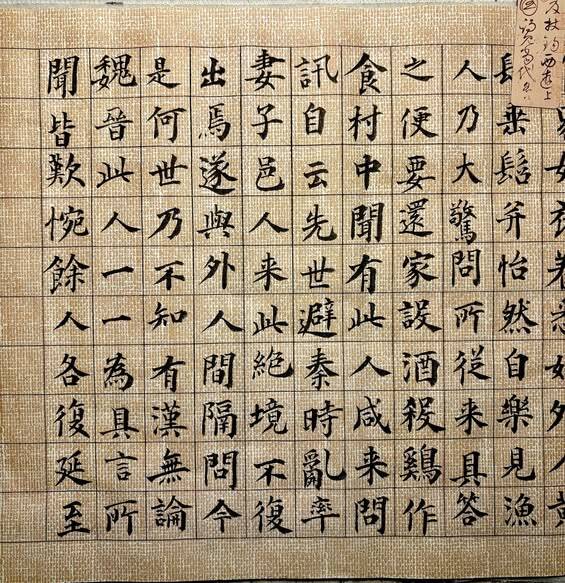 女衣着悉如外人黄
髮垂髫并怡然自樂見漁
人乃大驚問所從来具答
之便要還家設酒殺鷄作
食村中聞有此人咸来問
訊自云先世避秦時亂率
妻子邑人来此絶境不復
出焉遂與外人間隔問今
是何世乃不知有漢無論
魏晉此人一一為具言所
聞皆歎惋餘人各復延至